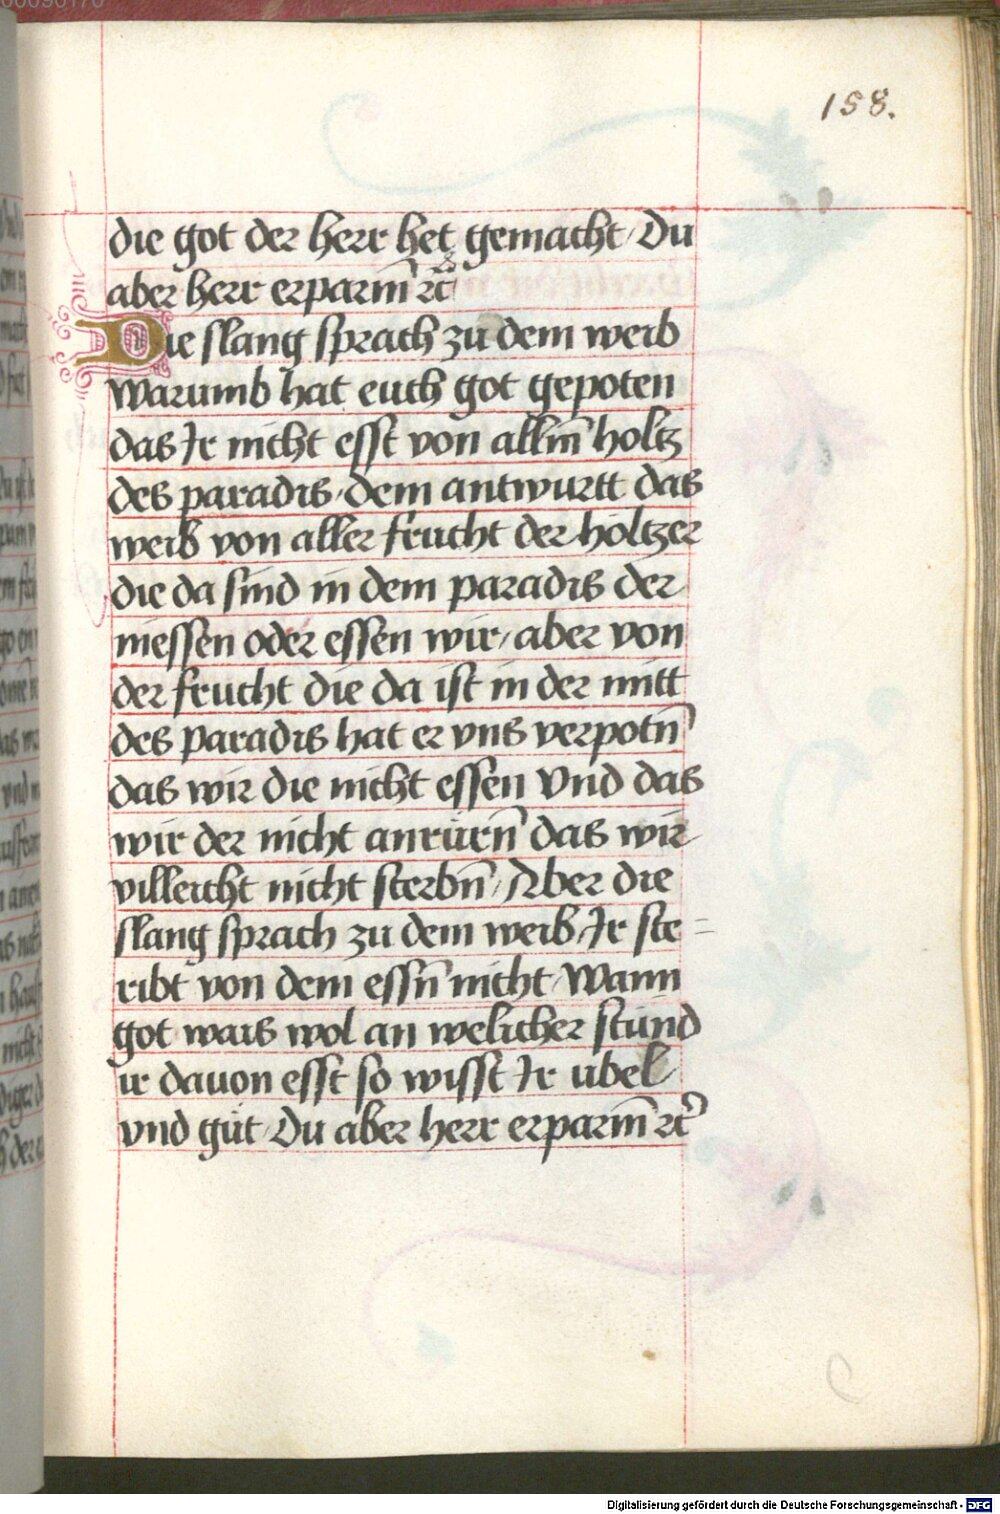 158.
die got der herr het gemacht / Du
aber herr erparm̄ ꝛc̄
Die slang sprach zu dem weib
Warumb hat euch got gepoten
das Ir nicht esst von allm̄ holtz
des paradis / dem antwurtt das
weib von aller frucht der höltzer
die da sind in dem paradis der
niessen oder essen wir / aber von
der frucht die da ist in der mitt
des paradis hat er vns verpotn̄
das wir die nicht essen Vnd das
wir der nicht anrürn̄ das wir
villeicht nicht sterbn̄ / Aber die
slang sprach zu dem weib / Ir ste=
ribt von dem essn̄ nicht / Wann
got wais wol an welicher stund
ir dauon esst so wisst Ir übel
vnd gut / Du aber herr erparm̄ ꝛc̄
Digitalisierung gefördert durch die Deutsche Forschungsgemeinschaft - DFG